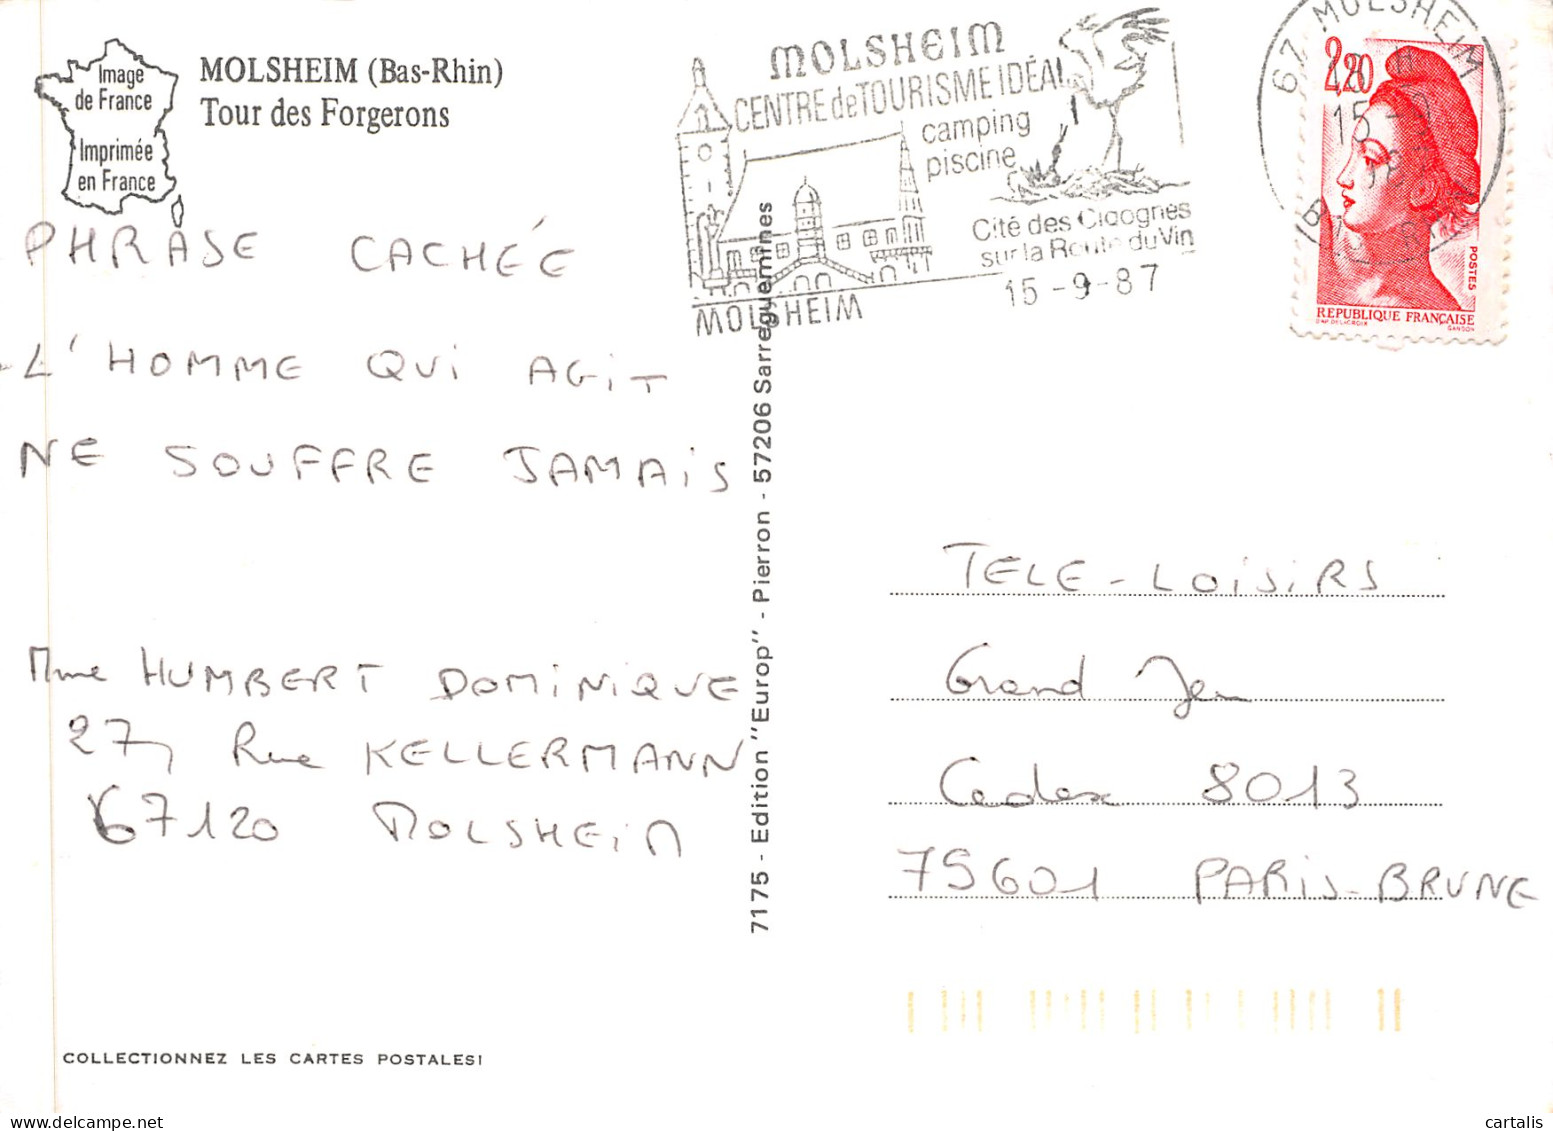 Image
de France
Imprimée
en France
MOLSHEIM (Bas-Rhin)
Tour des Forgerons
MOLSHEIM
CENTRE de TOURISME IDÉAL
camping
piscine
Cité des Cigognes
sur la Route du Vin
15-9-87
MOLSHEIM
67 MOLSHEIM
15-9
2,20
POSTES
REPUBLIQUE FRANÇAISE
D'AP DELACROIX GANDON
PHRASE CACHÉE
L'HOMME QUI AGIT
NE SOUFFRE JAMAIS
Mme HUMBERT DOMINIQUE
27, Rue KELLERMANN
67120 MOLSHEIM
7175 - Edition "Europ" - Pierron - 57206 Sarreguemines
TELE-LOISIRS
Grand Jeu
Cedex 8013
75601 PARIS-BRUNE
COLLECTIONNEZ LES CARTES POSTALES!
cartalis